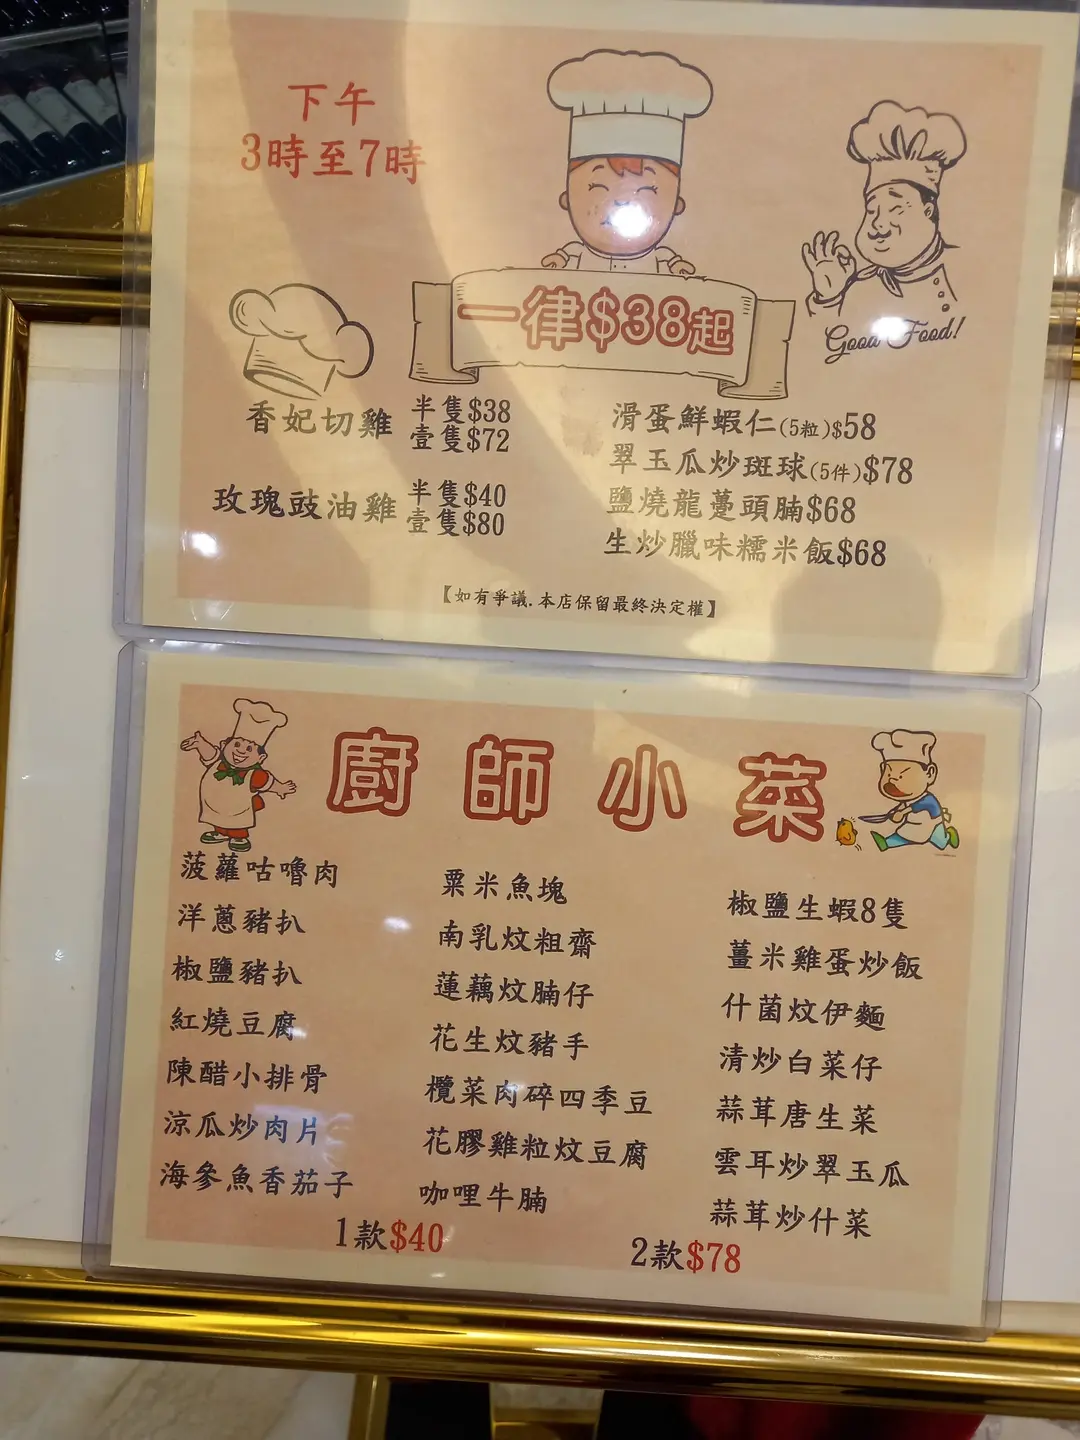 下午
3時至7時
一律$38起
Good Food!
香妃切雞 半隻$38
壹隻$72
玫瑰豉油雞 半隻$40
壹隻$80
滑蛋鮮蝦仁(5粒)$58
翠玉瓜炒斑球(5件)$78
鹽燒龍躉頭腩$68
生炒臘味糯米飯$68
【如有爭議.本店保留最終決定權】
廚師小菜
菠蘿咕嚕肉
洋蔥豬扒
椒鹽豬扒
紅燒豆腐
陳醋小排骨
涼瓜炒肉片
海參魚香茄子
粟米魚塊
南乳炆粗齋
蓮藕炆腩仔
花生炆豬手
欖菜肉碎四季豆
花膠雞粒炆豆腐
咖哩牛腩
椒鹽生蝦8隻
薑米雞蛋炒飯
什菌炆伊麵
清炒白菜仔
蒜茸唐生菜
雲耳炒翠玉瓜
蒜茸炒什菜
1款$40
2款$78